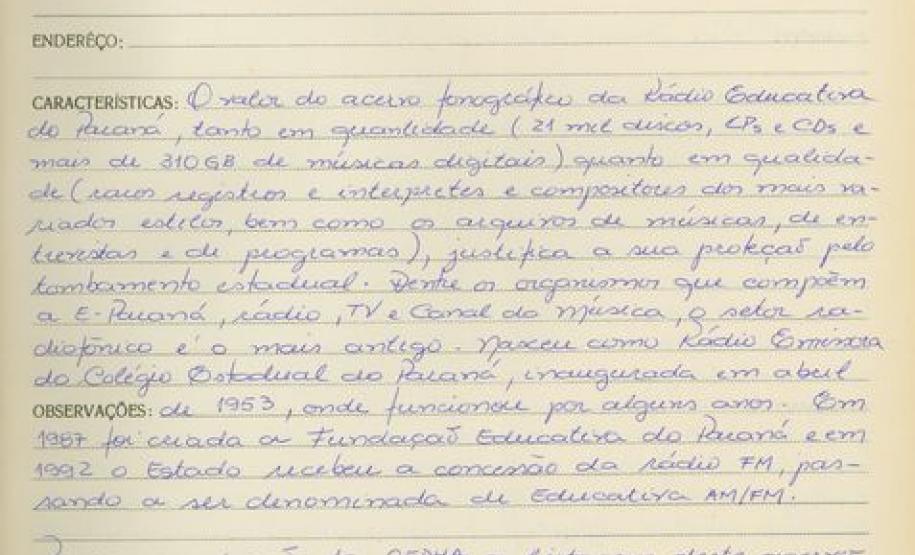 ENDERÊÇO:
CARACTERÍSTICAS: O valor do acervo fonográfico da Rádio Educativa
do Paraná, tanto em quantidade (21 mil discos, LPs e CDs e
mais de 310 GB de músicas digitais) quanto em qualida-
de (raros registros e interpretes e compositores dos mais va-
riados estilos, bem como os arquivos de músicas, de en-
trevistas e de programas), justifica a sua proteção pelo
tombamento estadual. Dentre os organismos que compõem
a E-Paraná, rádio, TV e Canal da Música, o setor ra-
diofônico é o mais antigo. Nasceu como Rádio Emissora
do Colégio Estadual do Paraná, inaugurada em abril
OBSERVAÇÕES: de 1953, onde funcionou por alguns anos. Em
1987 foi criada a Fundação Educativa do Paraná e em
1992 o Estado recebeu a concessão da rádio FM, pas-
sando a ser denominada de Educativa AM/FM.